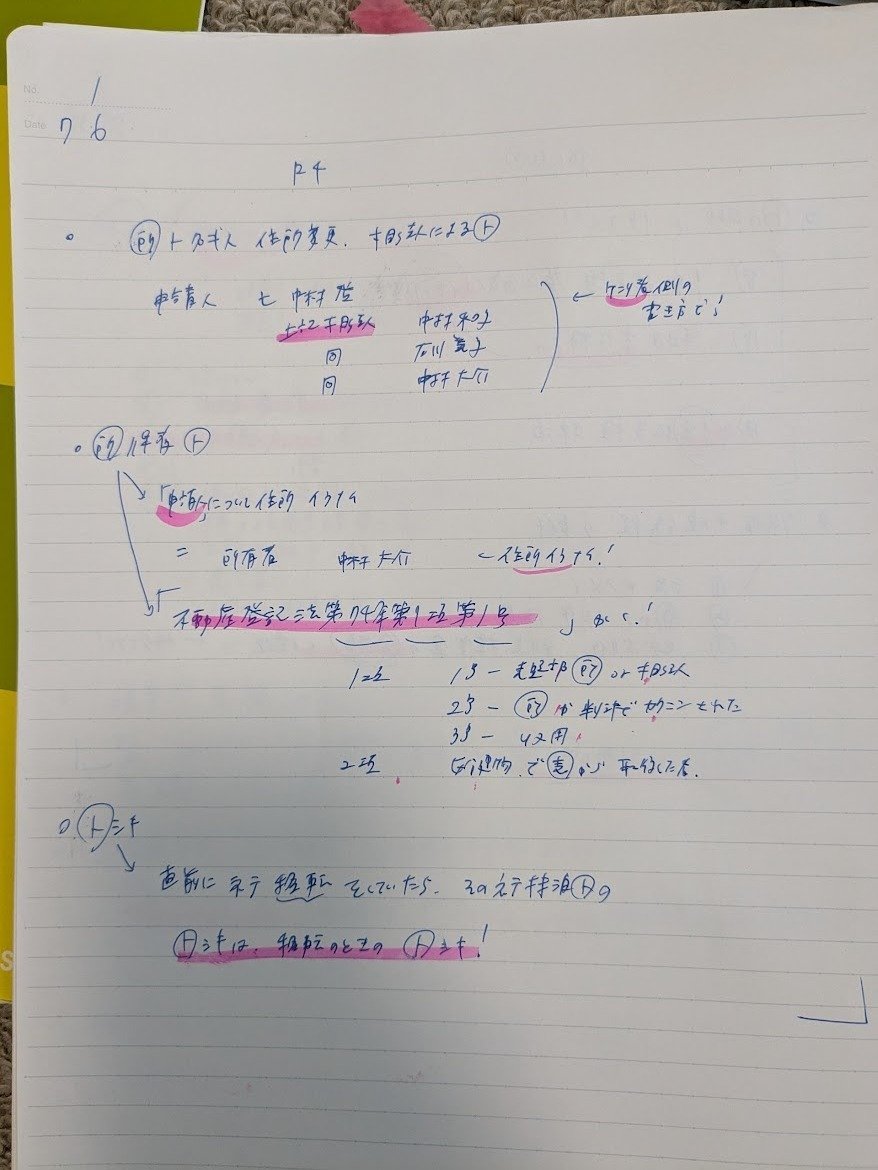 No. 1
Date 7 6
P4
○ 所ト名ギ人 住所変更. 相ぞく人による ト
申請人 亡 中村 啓
上記相ぞく人 中村
← ケンリ者側の
同 石川
書き方で!
同 中村 大介
○ 所 保存 ト
「申請人」について住所 イラナイ
= 所有者 中村 大介 ← 住所イラナイ!
「不動産登記法第74条第1項第1号」 かく!
1項 1号 - 表題部 所 or 相ぞく人
2号 - 所 が 判決で カクニンされた
3号 - 収用
2項 区分建物 で 表 から 取得した者.
○ トシキ
直前に ネテ 移転 をしていたら. そのネテ抹消トの
トシキは, 移転のときの トシキ!